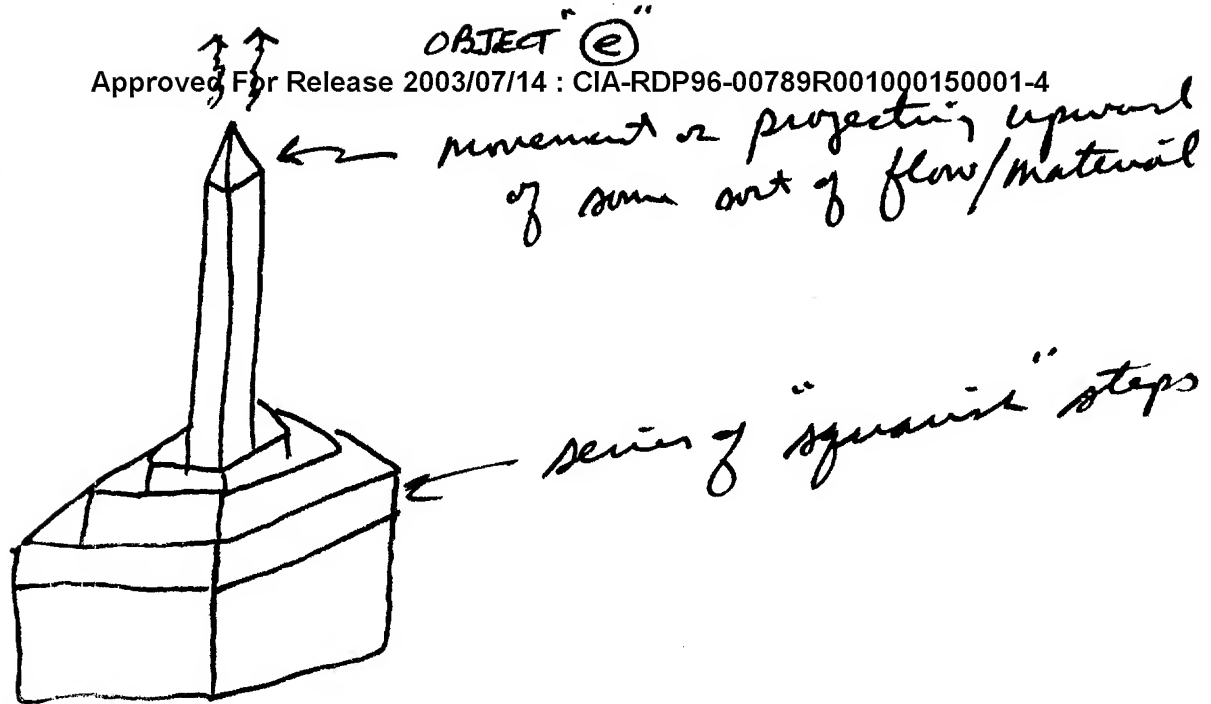 OBJECT "e"
Approved For Release 2003/07/14 : CIA-RDP96-00789R001000150001-4
movement or projecting upward
of some sort of flow/material
series of "squarish" steps